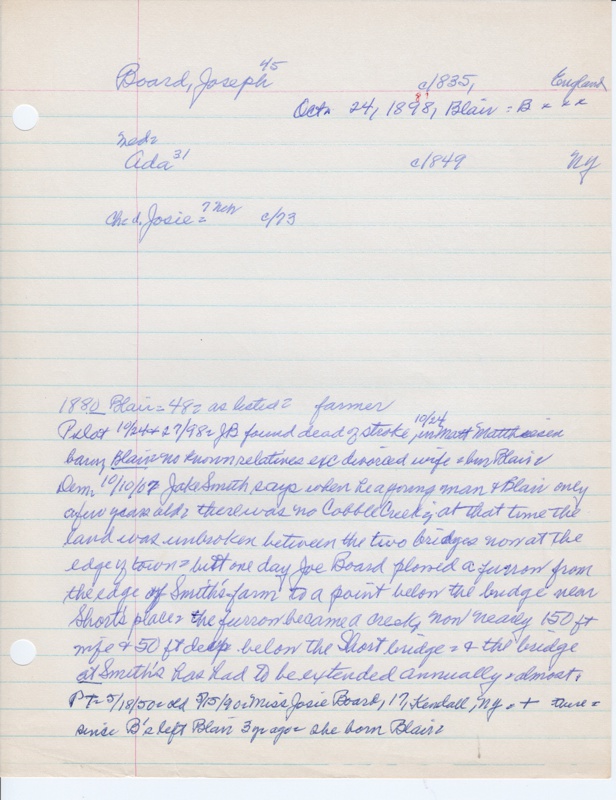 Board, Joseph 45 c/835, England
Oct 24, 1898, Blair = B x x x
Ada 31 c/849 NY
Ch = d, Josie = c/73
1880 Blair = 48 = as listed = farmer
Pilot 10/24 + 27/98 = JB found dead of stroke, 10/24 in Matt
barn, Blair = no known relatives exc divorced wife
Dem, 10/10/07 Jake Smith says when he a young man & Blair only
a few years old = there was no Cobble Creek; at that time the
land was unbroken between the two bridges now at the
edge of town = but one day Joe Board plowed a furrow from
the edge of Smith's farm to a point below the bridge near
Short's place = the furrow became a creek, now nearly 150 ft
wife & 50 ft deep below the Short bridge = & the bridge
at Smith's has had to be extended annually = almost.
PT = 5/18/50 = old 5/15/90 = Miss Josie Board, 17, Kendall, NY. +
since B's left Blair 3 y ago = she born Blair =